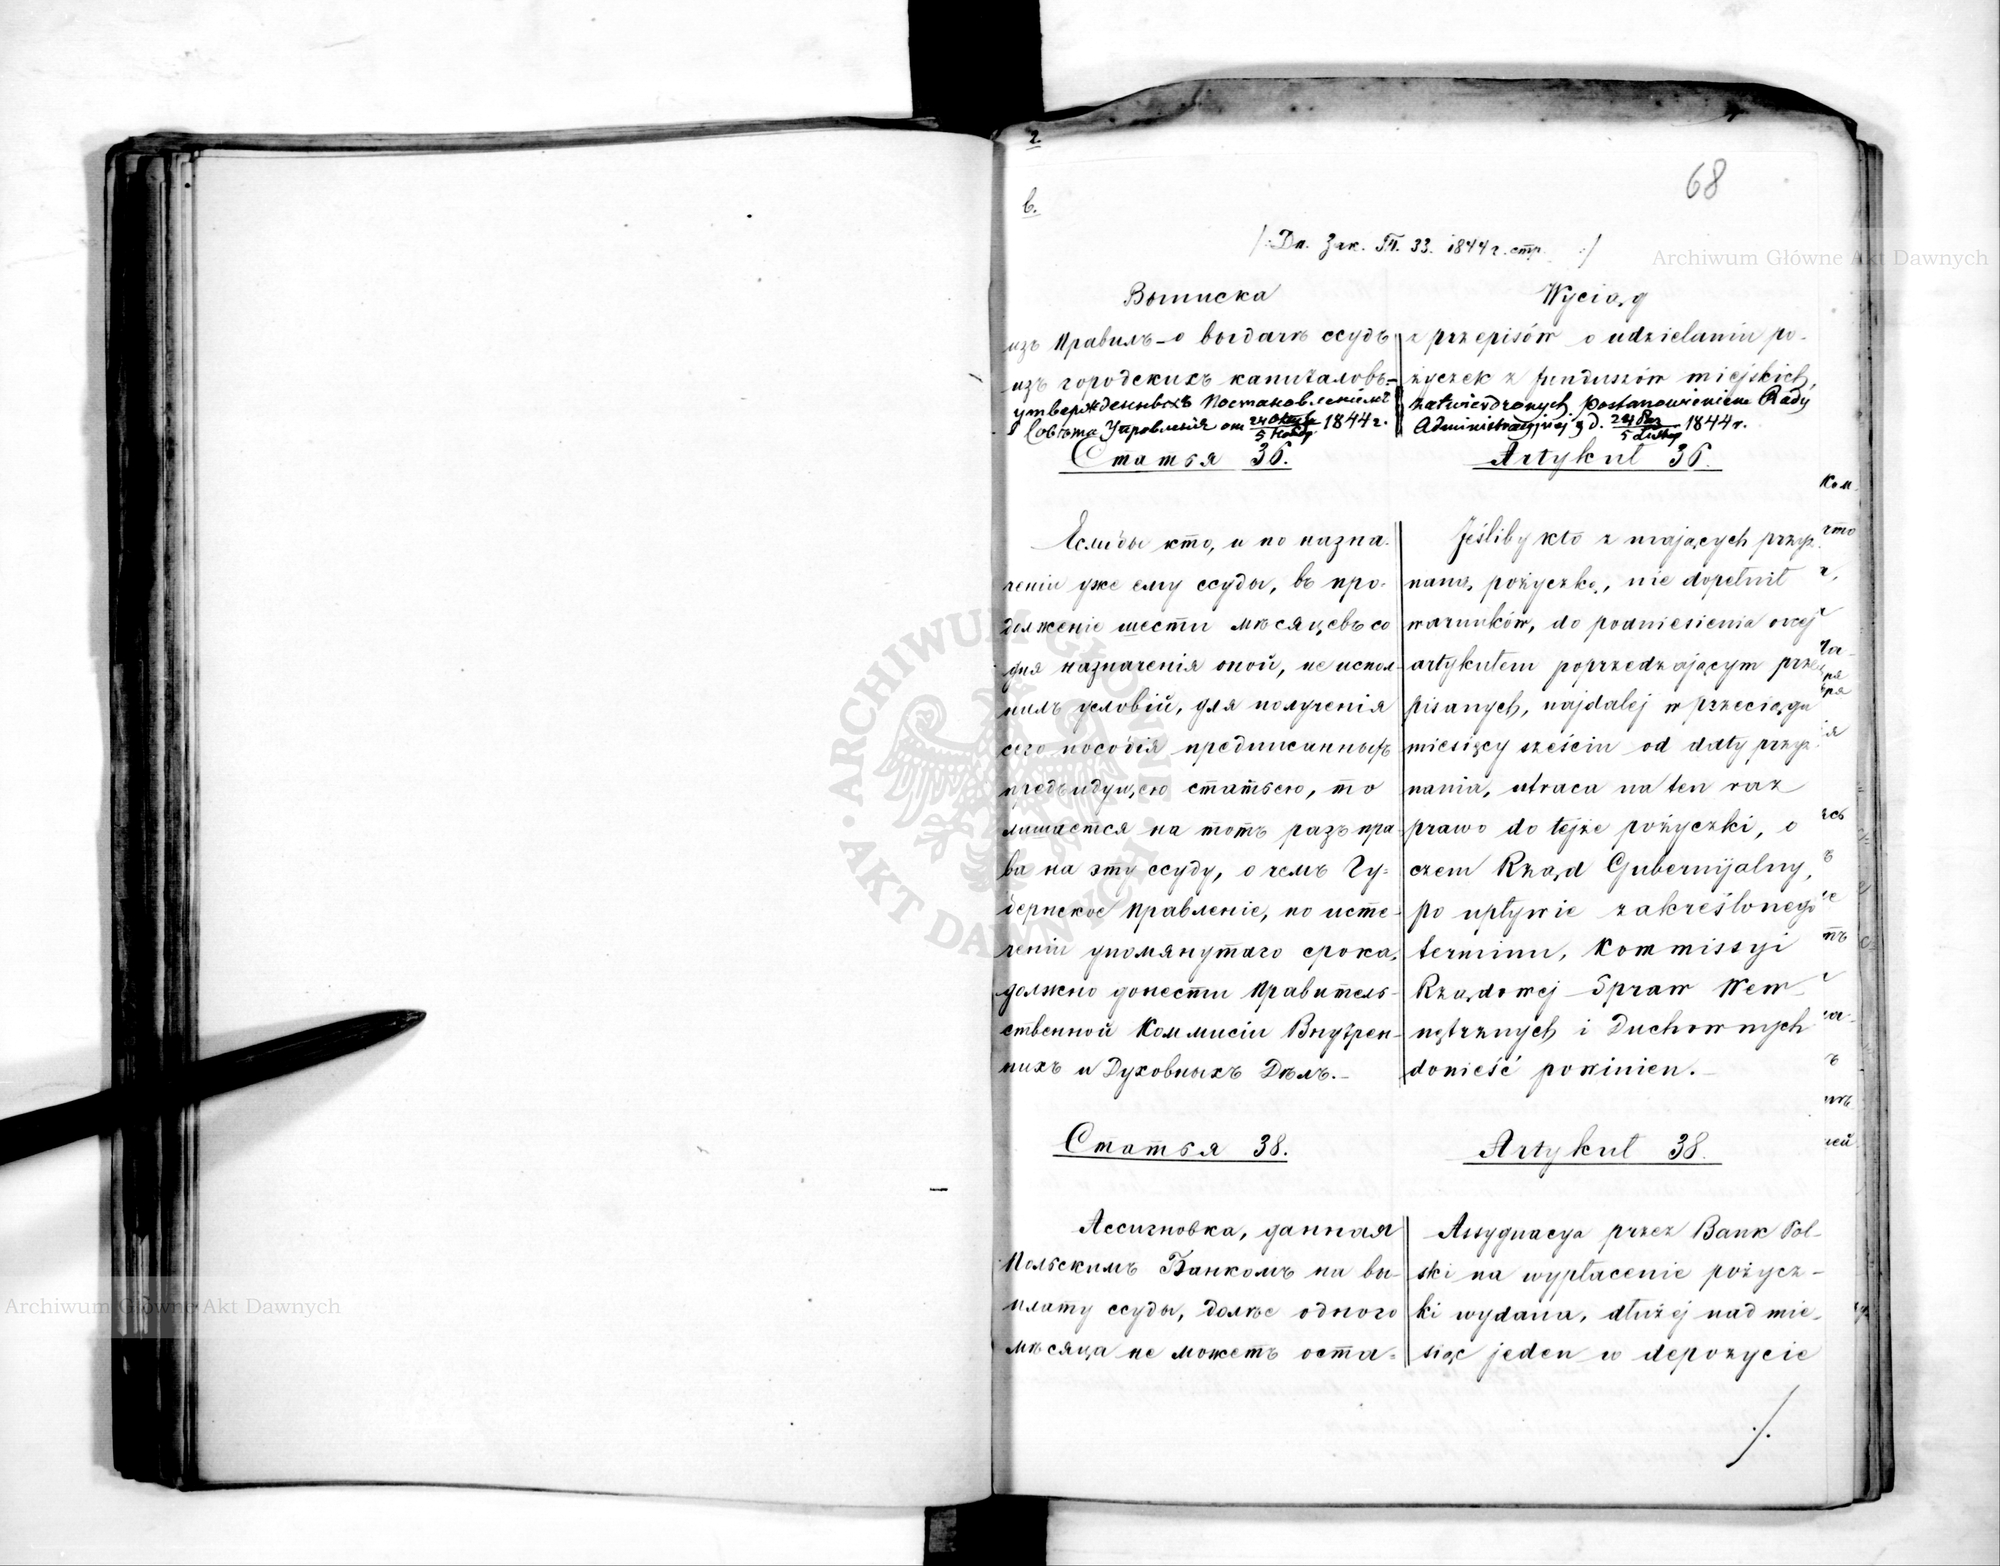 2.
68
b.
/: Дн. Зак. Т. 33. 1844 г. стр. :/
Выписка
изъ Правилъ о выдачѣ ссудъ
изъ городскихъ капиталовъ,
утвержденныхъ Постановленіемъ
Совѣта Управленія от 24 Октяб / 5 Нояб 1844 г.
Статья 36.
Еслибы кто, и по назна-
ченіи уже ему ссуды, въ про-
долженіе шести мѣсяцевъ со
дня назначенія оной, не испол-
нилъ условій, для полученія
сего пособія предписанныхъ
предъидущею статьею, то
лишается на тотъ разъ пра-
ва на эту ссуду, о чемъ Гу-
бернское Правленіе, по исте-
ченіи упомянутаго срока,
должно донести Правитель-
ственной Коммисіи Внутрен-
нихъ и Духовныхъ Дѣлъ.-
Статья 38.
Ассигновка, данная
Польскимъ Банкомъ на вы-
плату ссуды, долѣе одного
мѣсяца не можетъ оста-
Wyciąg
z przepisów o udzielaniu po-
życzek z funduszów miejskich,
zatwierdzonych Postanowieniem Rady
Administracyjnej z d. 24 Paź / 5 Listop 1844 r.
Artykuł 36.
Jeśliby kto z mających przyz
naną pożyczkę, nie dopełnił
warunków, do podniesienia onej
artykułem poprzedzającym prze
pisanych, najdalej w przeciągu
miesięcy sześciu od daty przyz
nania, utraca na ten raz
prawo do tejże pożyczki, o
czem Rząd Gubernijalny,
po upływie zakreślonego
terminu, Kommissyi
Rządowej Spraw Wew-
nętrznych i Duchownych
donieść powinien.-
Artykuł 38.
Assygnacya przez Bank Pol-
ski na wypłacenie pożycz-
ki wydana, dłużej nad mie-
siąc jeden w depozycie
./.
Archiwum Główne Akt Dawnych
ARCHIWUM GŁÓWNE AKT DAWNYCH
Archiwum Główne Akt Dawnych